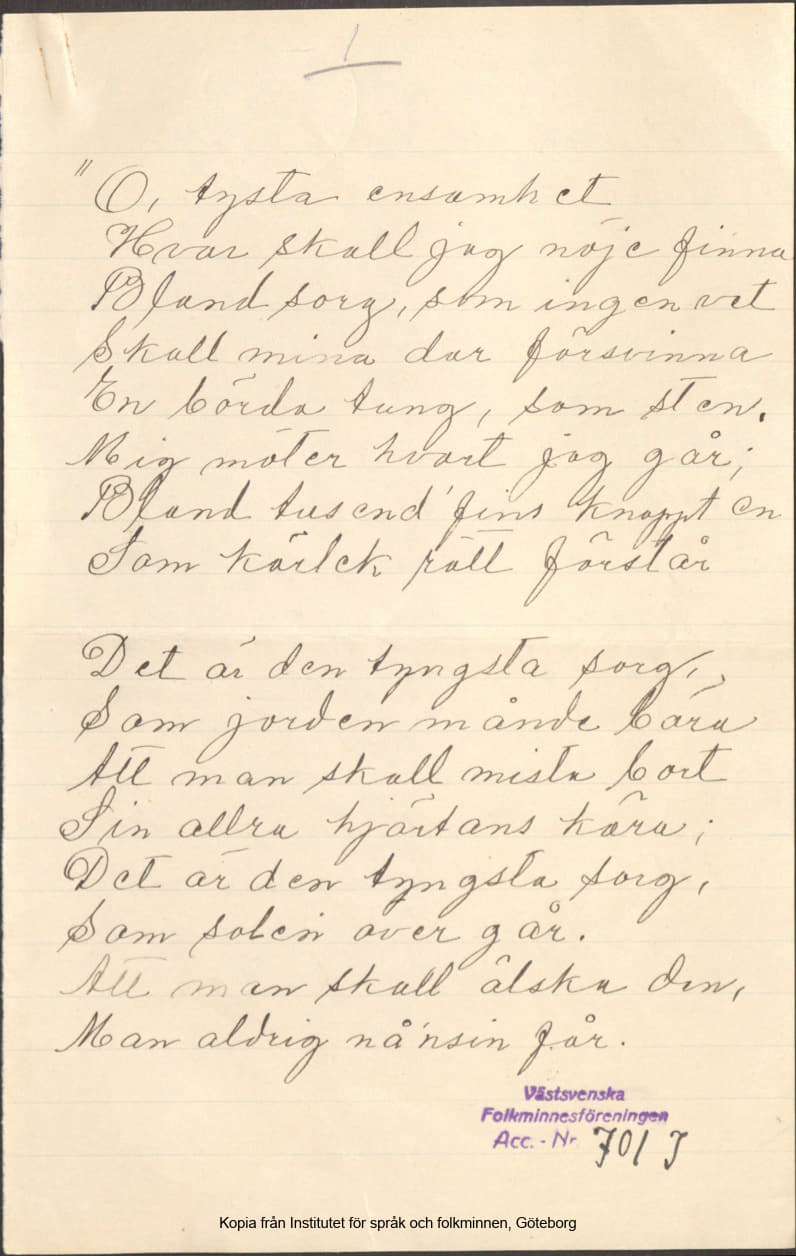 1
"O, tysta ensamhet
Hvar skall jag nöje finna
Bland sorg, som ingen vet
Skall mina dar försvinna
En börda tung, som sten.
Mig möter hvart jag går;
Bland tusend' fins knappt en
Som kärlek rätt förstår
Det är den tyngsta sorg,
Som jorden månde bära
Att man skall mista bort
Sin allra hjärtans kära;
Det är den tyngsta sorg,
Som solen över går.
Att man skall älska den,
Man aldrig nå'nsin får.
Västsvenska
Folkminnesföreningen
Acc. - Nr 701 J
Kopia från Institutet för språk och folkminnen, Göteborg